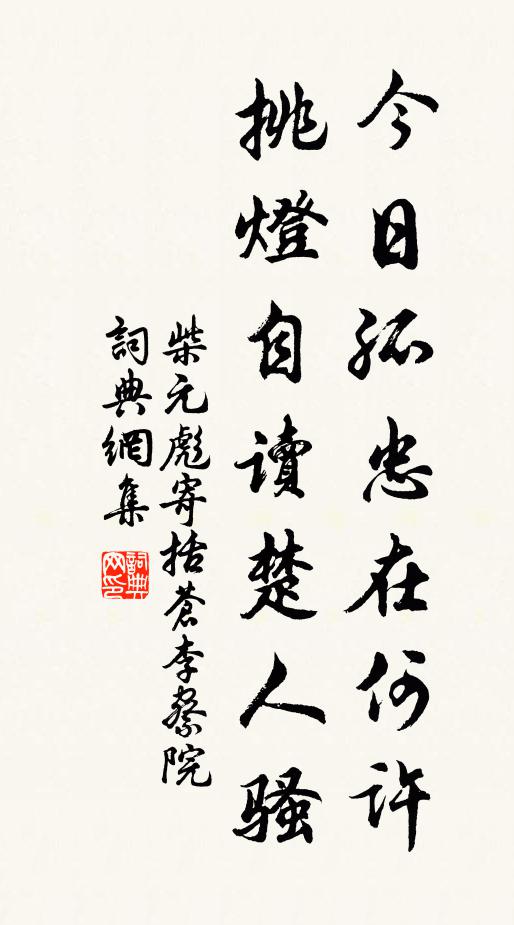 今日孤忠在何許
挑燈自讀楚人騷
柴元彪寄括蒼李察院
詞典網集
詞典網印